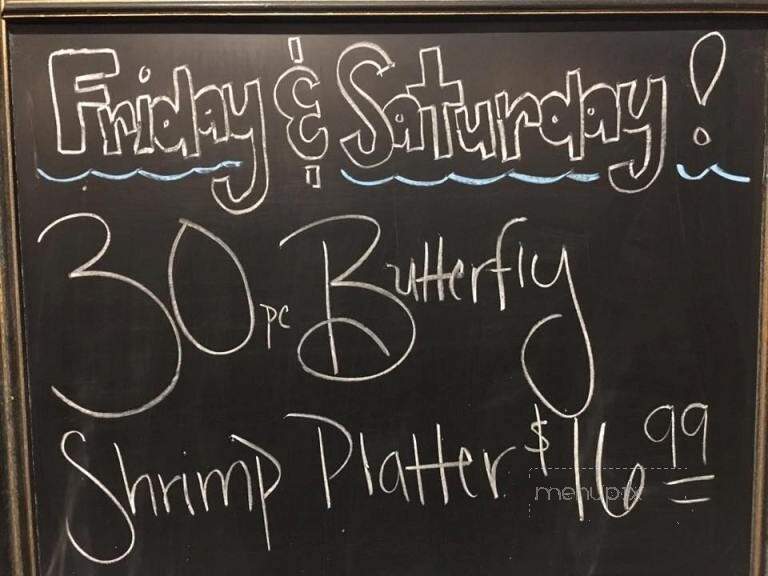 Friday & Saturday!
30 pc Butterfly
Shrimp Platter $16.99
menupix